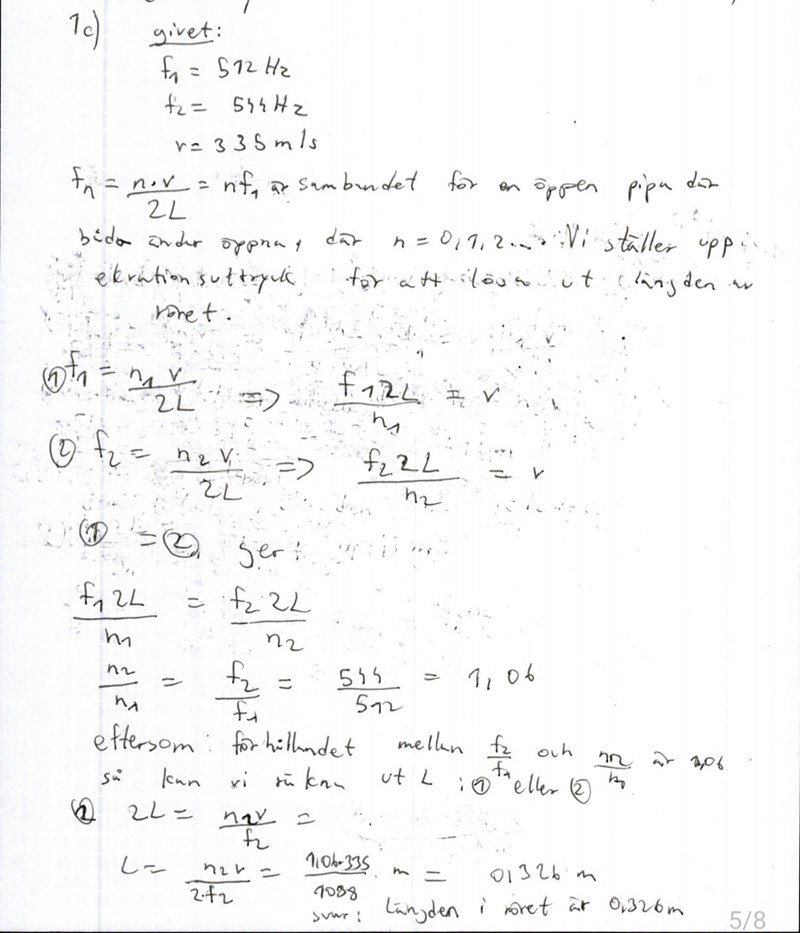 1c) givet:
f₁ = 512 Hz
f₂ = 544 Hz
v = 335 m/s
fₙ = n·v/2L = nf₁ är sambandet för en öppen pipa där
båda ändar öppna, där n = 0,1,2.... Vi ställer upp
ekvationsuttryck för att lösa ut längden av
röret.
① f₁ = n₁ v/2L => f₁2L/n₁ = v
② f₂ = n₂ v/2L => f₂2L/n₂ = v
① = ② ger:
f₁2L/n₁ = f₂2L/n₂
n₂/n₁ = f₂/f₁ = 544/512 = 1,06
eftersom förhållandet mellan f₂/f₁ och n₂/n₁ är 1,06
så kan vi räkna ut L i ① eller ②
② 2L = n₂v/f₂ =
L = n₂v/2·f₂ = 1,06·335/1088 m = 0,326 m
svar: Längden i röret är 0,326m
5/8